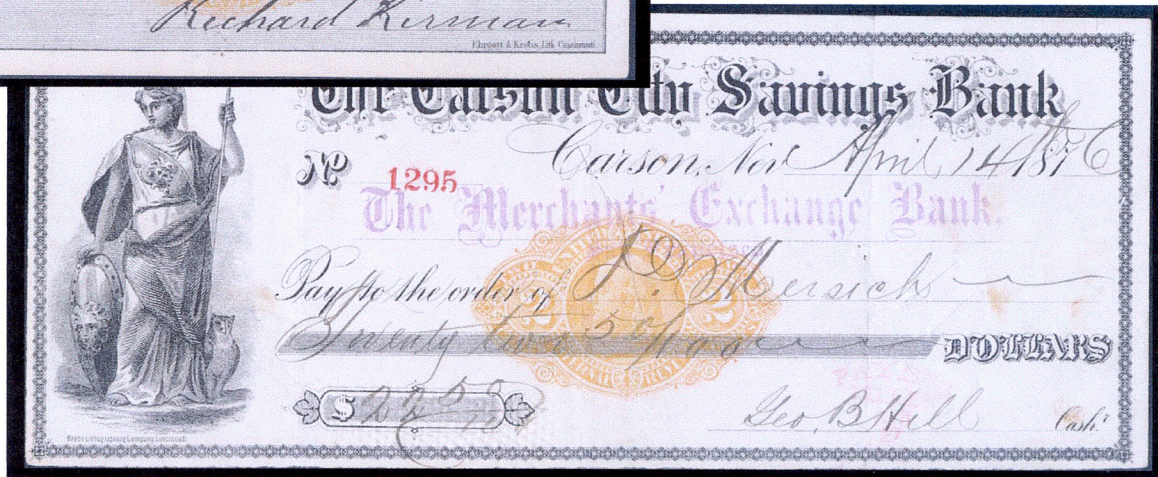 Richard Kirman
Ehrgott & Krebs, Lith. Cincinnati
The Carson City Savings Bank
Carson, Nev April 14 1876
No 1295
The Merchants' Exchange Bank,
Pay to the order of J.D. Mersick
2 2
Twenty two 50/100 DOLLARS
PAID
$ 22 50/100
Geo. B Hill Cash.r
Krebs Lithographing Company, Cincinnati